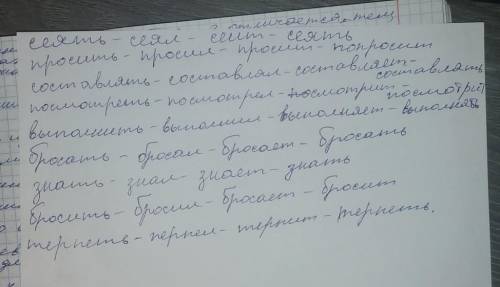 отличается
сеять - сеял - сеит - сеять
просить - просил - просит - попросит
составлять - составлял - составляет - составлять
посмотреть - посмотрел - посмотрит - посмотрит
выполнить - выполнил - выполняет - выполнять
бросать - бросал - бросает - бросать
знать - знал - знает - знать
бросить - бросил - бросает - бросит
терпеть - терпел - терпит - терпеть.